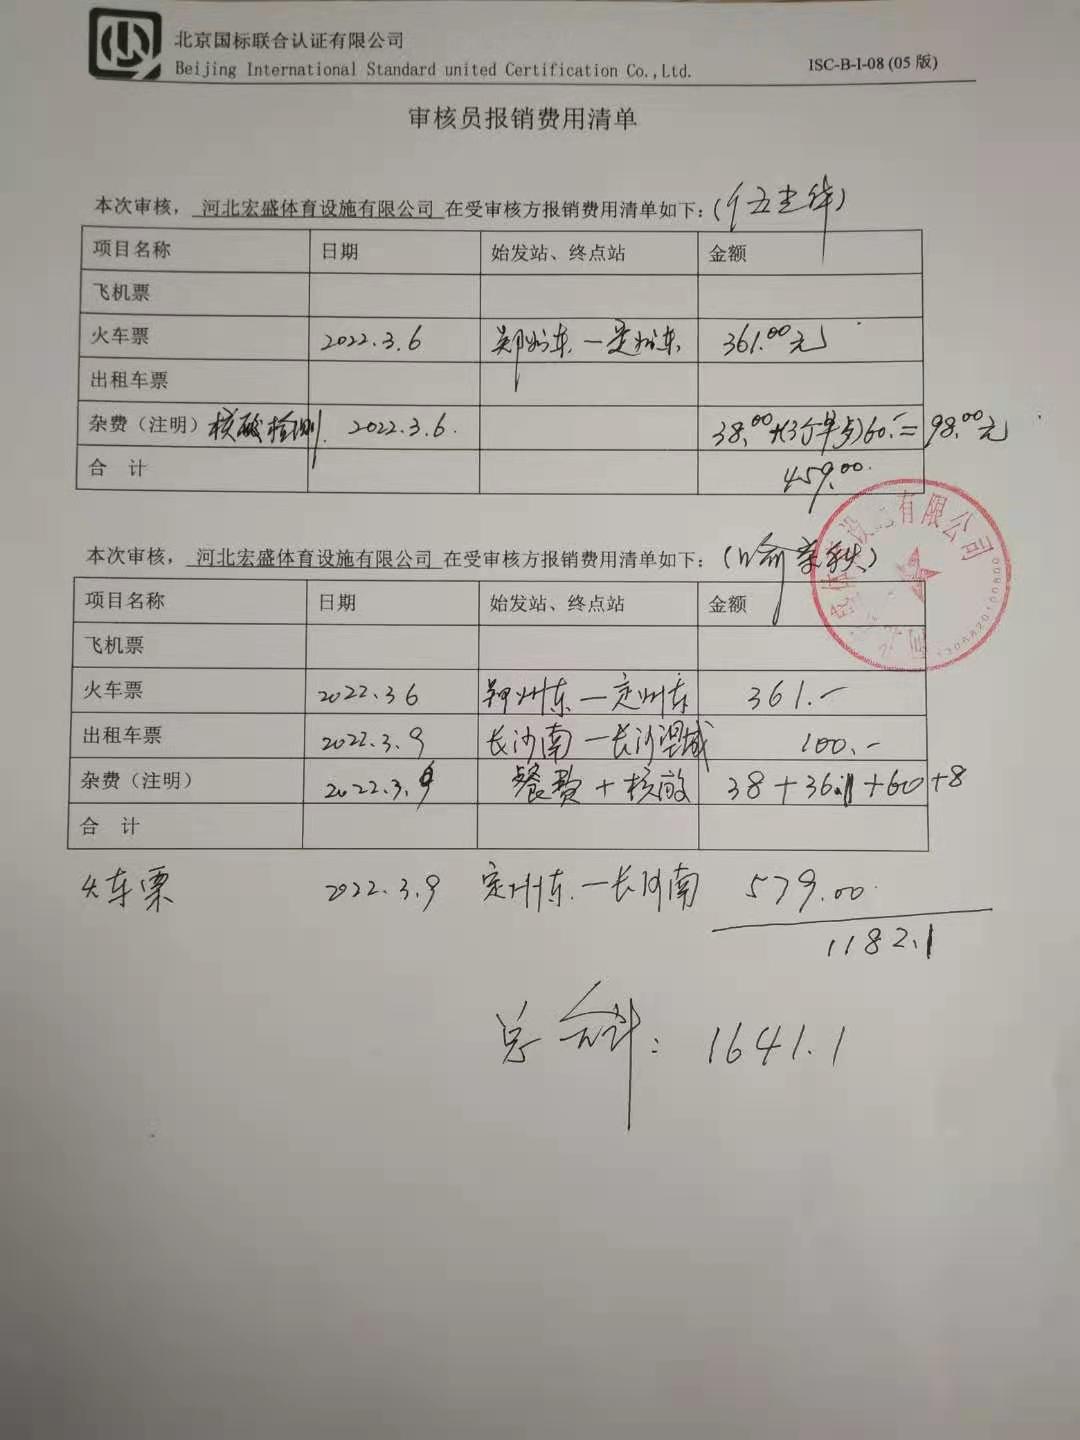 北京国标联合认证有限公司
Beijing International Standard united Certification Co.,Ltd.
ISC-B-I-08 (05 版)
审核员报销费用清单
本次审核，河北宏盛体育设施有限公司 在受审核方报销费用清单如下：（伍光华）
项目名称 日期 始发站、终点站 金额
飞机票
火车票 2022.3.6 郑州东—定州东 361.00元
出租车票
杂费（注明）核酸检测 2022.3.6. 38.00+(3个早点)60.-=98.00元
合 计 459.00.
本次审核，河北宏盛体育设施有限公司 在受审核方报销费用清单如下：
项目名称 日期 始发站、终点站 金额
飞机票
火车票 2022.3.6 郑州东—定州东 361.-
出租车票 2022.3.9 长沙南—长沙望城 100.-
杂费（注明） 2022.3.9 餐费+核酸 38+36.1+60+8
合 计
火车票 2022.3.9 定州东.—长沙南 579.00
1182.1
总合计：1641.1
设施有限公司